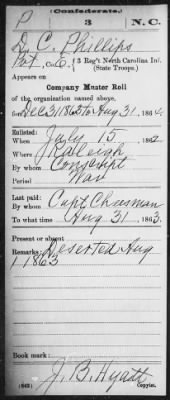 (Confederate.)
P 3 N.C.
D. C. Phillips
Pvt, Co. E, 3 Reg't North Carolina Inf.
(State Troops.)
Appears on
Company Muster Roll
of the organization named above,
for Dec 31, 1863 to Aug 31, 1864.
Enlisted:
When July 15, 1862
Where Raleigh
By whom Conscript
Period War
Last paid:
By whom Capt Cheesman
To what time Aug 31, 1863.
Present or absent
Remarks: Deserted Aug
1 1863
Book mark:
J. B. Hyatt
(642) Copyist.